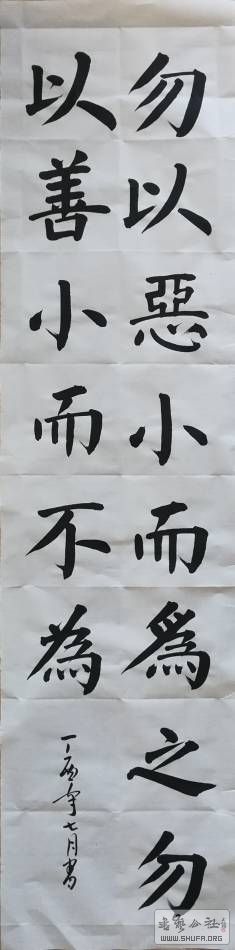 勿以惡小而爲之勿
以善小而不為
丁酉年七月書
書藝公社
WWW.SHUFA.ORG